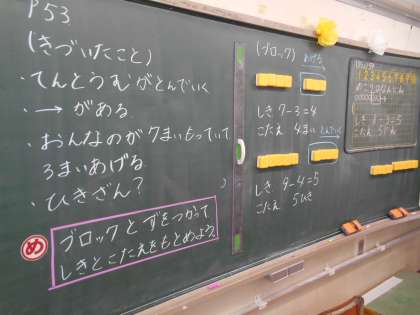 P53
(きづいたこと)
・てんとうむがとんでいく
・→ がある
・おんなのが7まいもっていて
3まいあげる
・ひきざん?
め
ブロックとずをつかって
しきとこたえをもとめよう。
(ブロック)
あげる
しき 7-3=4
こたえ 4まい
とんでいく
しき 9-4=5
こたえ 5ひき
12345678910
しき 8-3=5
こたえ